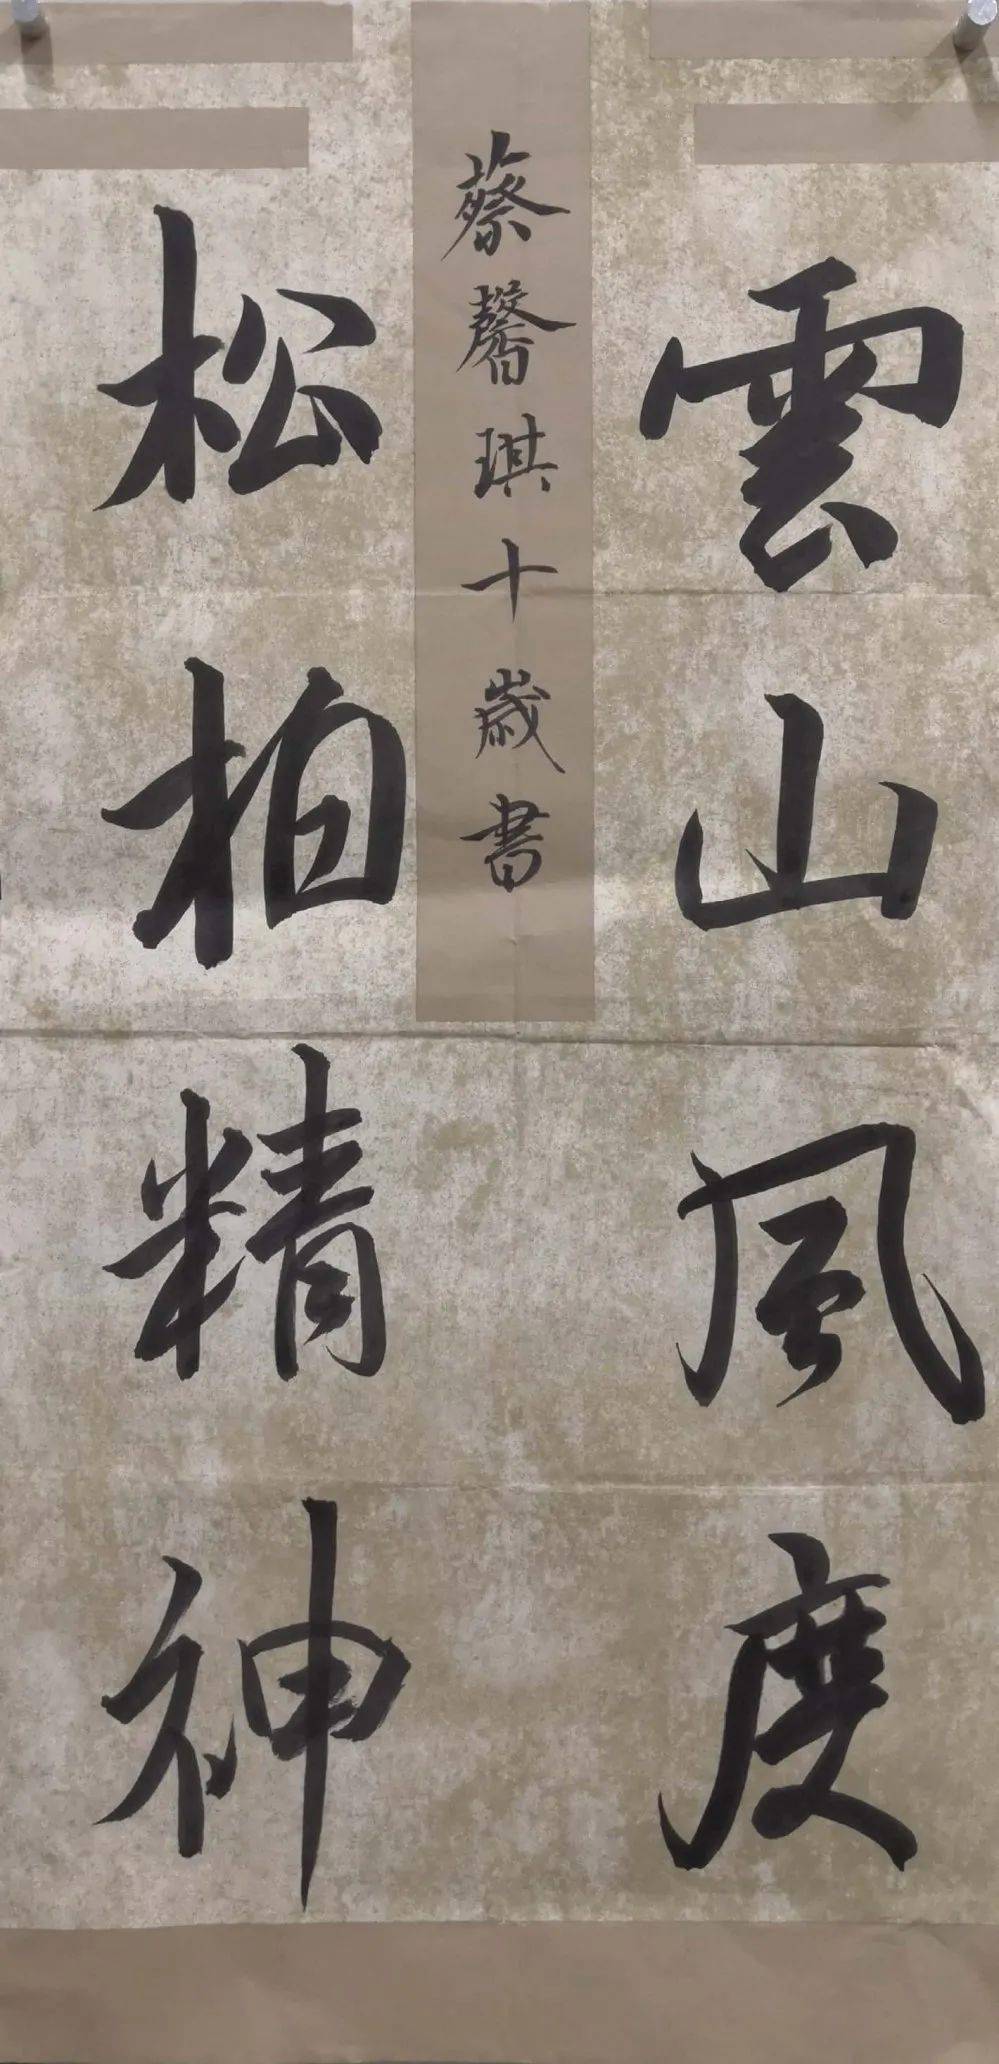 雲山風度
松柏精神
蔡馨琪十歲書